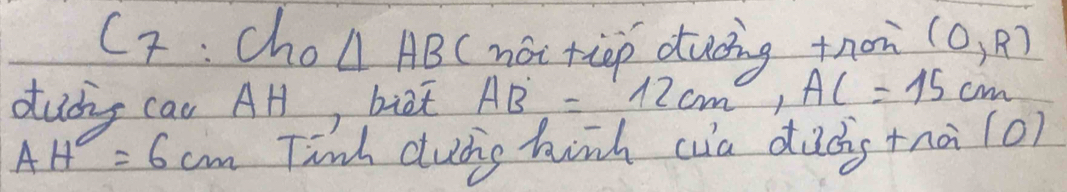 C7 : Cho Δ ABC nội tiếp đường tròn (O,R)
đường cao AH , biết AB = 12cm , AC = 15 cm
AH = 6 cm Tính đường kính của đường tròn (O)